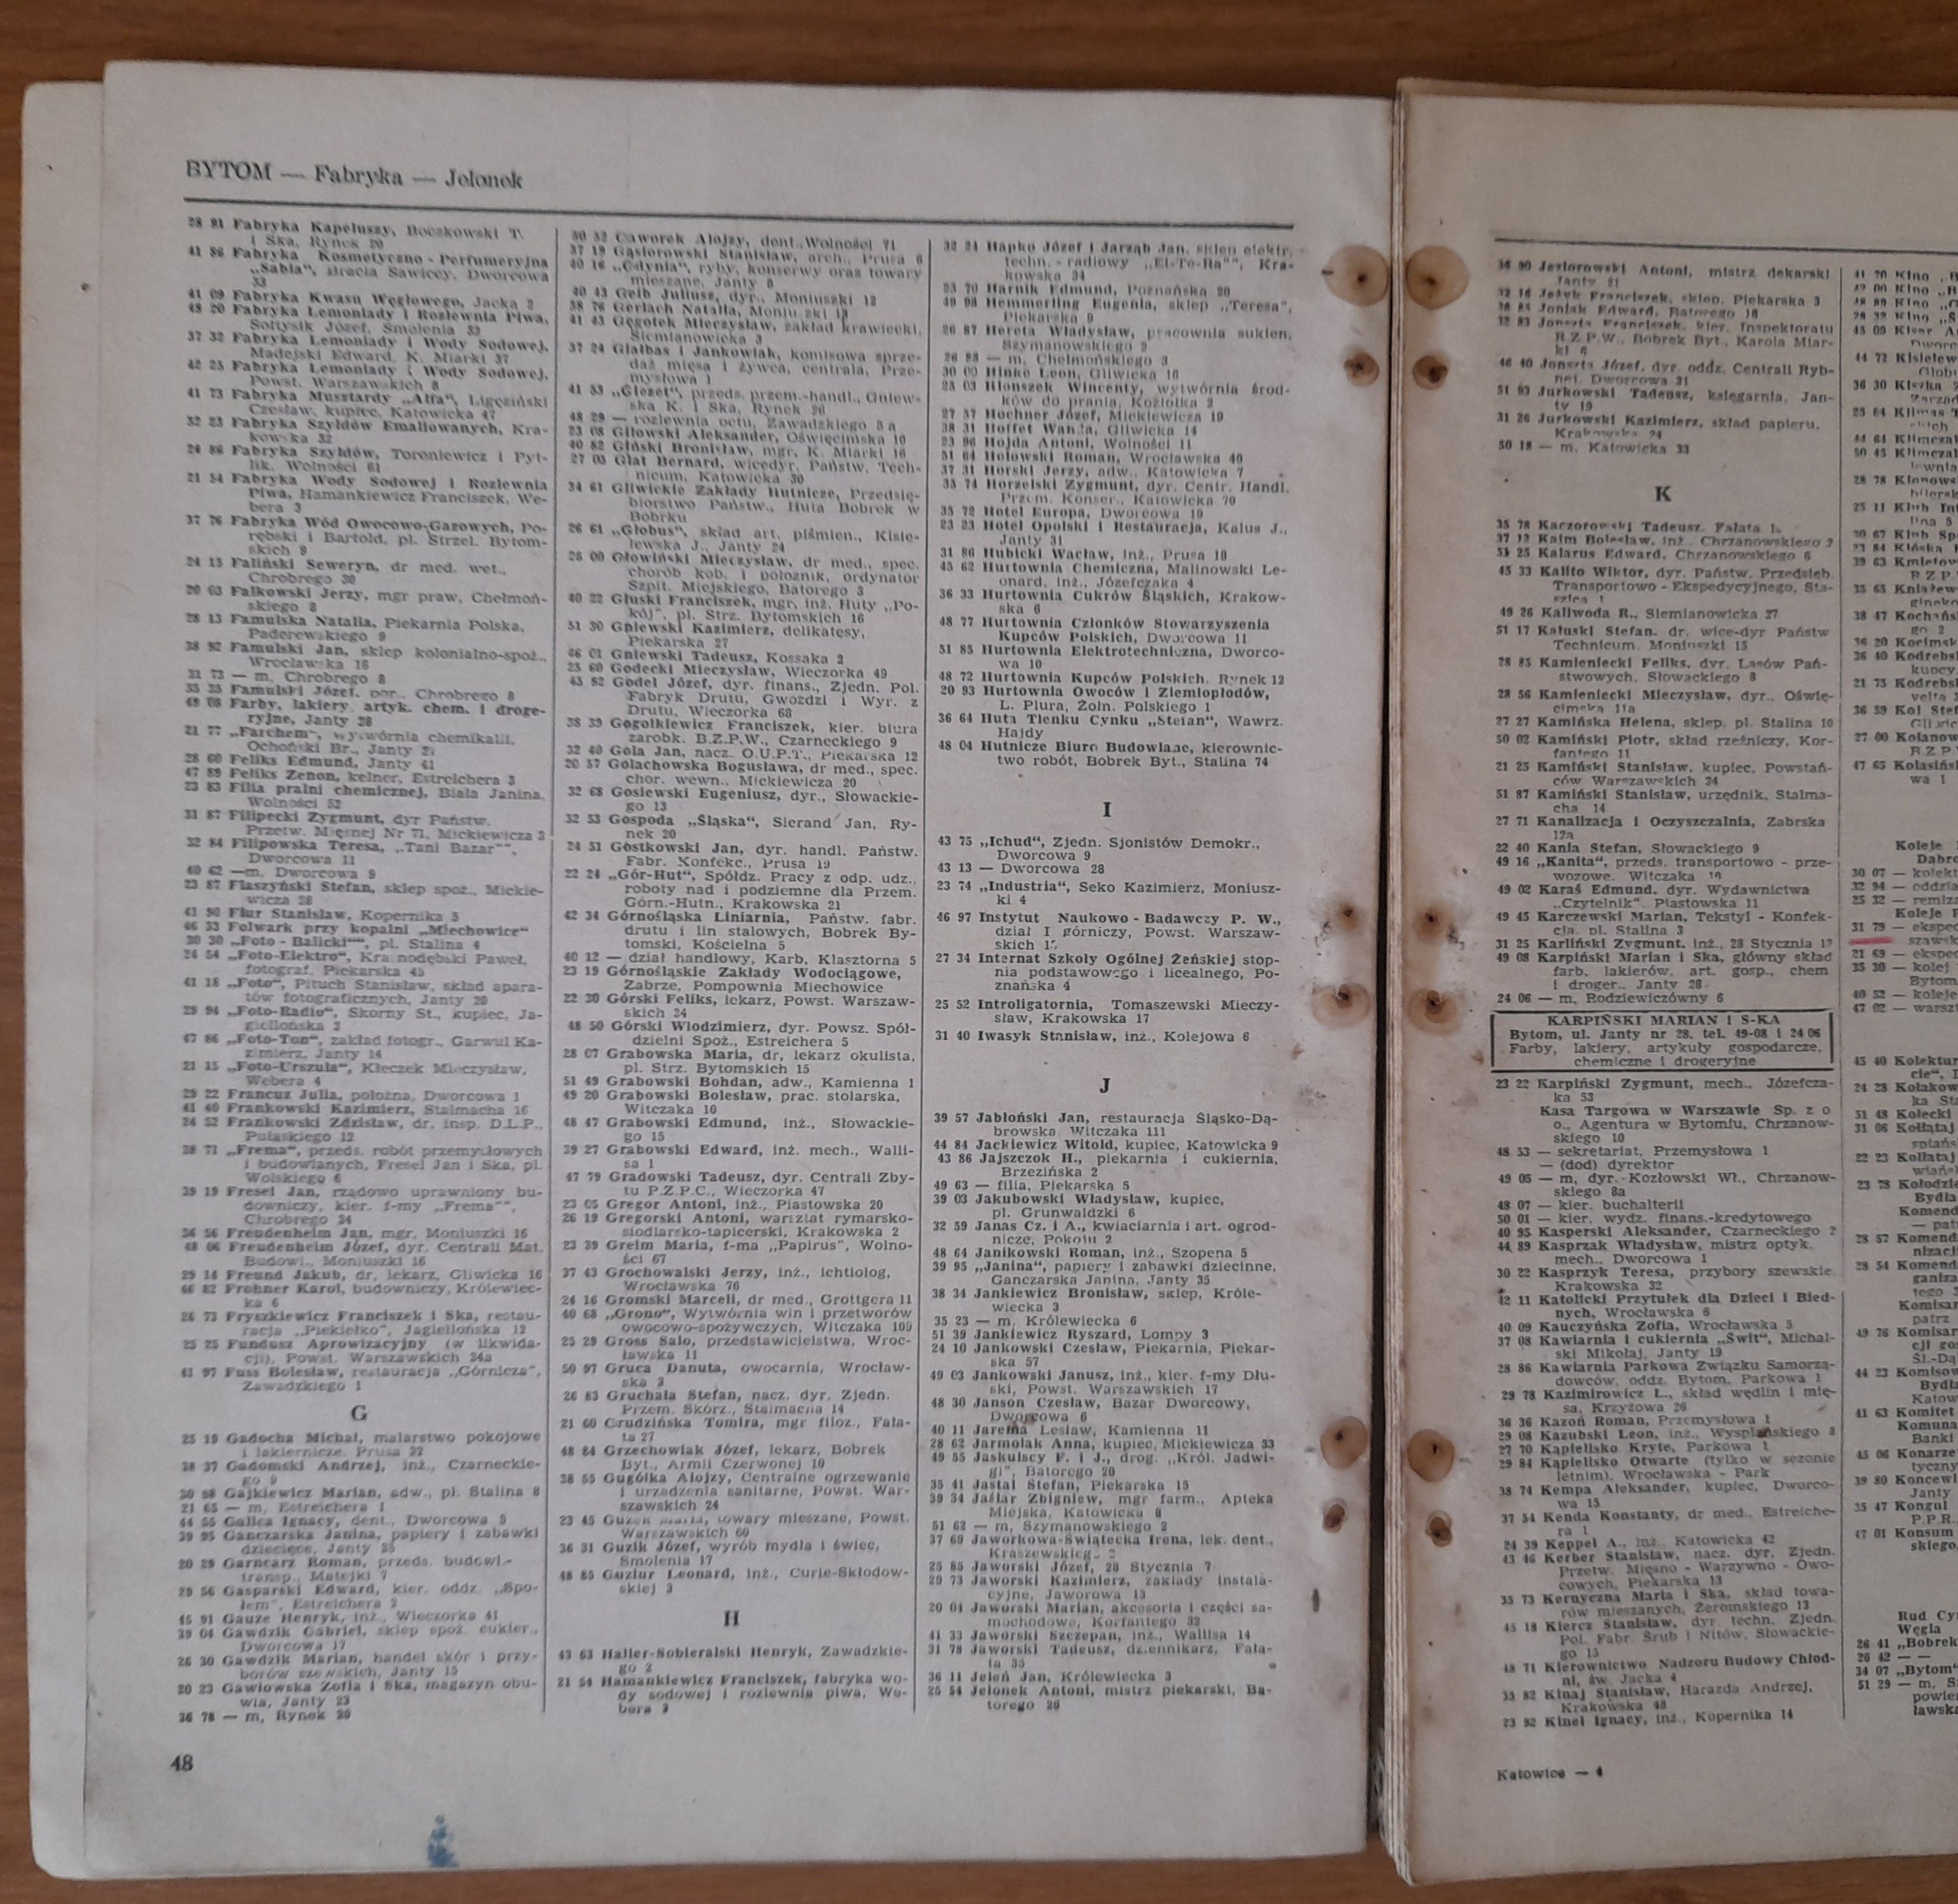 BYTOM — Fabryka — Jelonek
28 91 Fabryka Kapeluszy, Boczkowski T.
i Ska, Rynek 20
41 86 Fabryka Kosmetyczno - Perfumeryjna
„Sabla“, Bracia Sawiccy, Dworcowa
33
41 09 Fabryka Kwasu Węglowego, Jacka 2
48 20 Fabryka Lemoniady i Rozlewnia Piwa,
Sołtysik Józef, Smolenia 32
37 32 Fabryka Lemoniady i Wody Sodowej,
Madejski Edward, K. Miarki 37
42 25 Fabryka Lemoniady i Wody Sodowej,
Powst. Warszawskich 8
41 73 Fabryka Musztardy „Alfa“, Ligęziński
Czesław, kupiec, Katowicka 47
32 23 Fabryka Szyldów Emaliowanych, Kra-
kowska 32
24 86 Fabryka Szyldów, Toroniewicz i Pyt-
lik, Wolności 61
21 54 Fabryka Wody Sodowej i Rozlewnia
Piwa, Hamankiewicz Franciszek, We-
bera 3
37 76 Fabryka Wód Owocowo-Gazowych, Po-
rębski i Bartold, pl. Strzel. Bytom-
skich 9
24 15 Faliński Seweryn, dr med. wet.,
Chrobrego 30
20 63 Falkowski Jerzy, mgr praw, Chełmoń-
skiego 8
28 13 Famulska Natalia, Piekarnia Polska,
Paderewskiego 9
38 92 Famulski Jan, sklep kolonialno-spoż.,
Wrocławska 16
31 73 — m, Chrobrego 8
33 35 Famulski Józef, por., Chrobrego 8
49 08 Farby, lakiery, artyk. chem. i droge-
ryjne, Janty 28
21 77 „Farchem“, wytwórnia chemikalii,
Ochoński Br., Janty
28 60 Feliks Edmund, Janty 41
47 89 Feliks Zenon, kelner, Estreichera 3
23 83 Filia pralni chemicznej, Biała Janina,
Wolności 52
31 87 Filipecki Zygmunt, dyr Państw.
Przetw. Mięsnej Nr 71, Mickiewicza 3
32 84 Filipowska Teresa, „Tani Bazar““,
Dworcowa 11
60 62 —m, Dworcowa 9
23 87 Flaszyński Stefan, sklep spoż., Mickie-
wicza 28
41 90 Flur Stanisław, Kopernika 5
46 33 Folwark przy kopalni „Miechowice“
30 30 „Foto - Balicki““, pl. Stalina 4
24 54 „Foto-Elektro“, Kra nodębski Paweł,
fotograf, Piekarska 45
41 18 „Foto“, Pituch Stanisław, skład apara-
tów fotograficznych, Janty 20
29 94 „Foto-Radio“, Skorny St., kupiec, Ja-
giellońska 3
47 86 „Foto-Ton“, zakład fotogr., Garwul Ka-
zimierz, Janty 14
21 15 „Foto-Urszula“, Kłeczek Mieczysław,
Webera 4
29 22 Francuz Julia, położna, Dworcowa 1
41 40 Frankowski Kazimierz, Stalmacha 16
24 52 Frankowski Zdzisław, dr, insp. D.L.P.,
Pułaskiego 12
28 71 „Frema“, przeds. robót przemysłowych
i budowlanych, Fresel Jan i Ska, pl.
Wolskiego 6
39 19 Fresel Jan, rządowo uprawniony bu-
downiczy, kier. f-my „Frema““,
Chrobrego 34
36 56 Freudenheim Jan, mgr, Moniuszki 16
48 06 Freudenheim Józef, dyr. Centrali Mat.
Budowl., Moniuszki 16
29 14 Freund Jakub, dr, lekarz, Gliwicka 16
46 82 Frohner Karol, budowniczy, Królewiec-
ka 6
26 73 Fryszkiewicz Franciszek i Ska, restau-
racja „Piekiełko“, Jagiellońska 12
25 25 Fundusz Aprowizacyjny (w likwida-
cji), Powst. Warszawskich 24a
41 97 Fuss Bolesław, restauracja „Górnicza“,
Zawadzkiego 1
G
25 19 Gadocha Michał, malarstwo pokojowe
i lakiernicze, Prusa 22
38 37 Gadomski Andrzej, inż., Czarneckie-
go 9
30 98 Gajkiewicz Marian, adw., pl. Stalina 8
21 65 — m, Estreichera 1
44 55 Galica Ignacy, dent., Dworcowa 5
39 95 Ganczarska Janina, papiery i zabawki
dziecięce, Janty 35
20 29 Garncarz Roman, przeds. budowl.-
transp., Matejki 7
29 56 Gasparski Edward, kier. oddz. „Spo-
łem“, Estreichera 2
45 91 Gauze Henryk, inż., Wieczorka 41
39 04 Gawdzik Gabriel, sklep spoż. cukier.,
Dworcowa 17
26 30 Gawdzik Marian, handel skór i przy-
borów szewskich, Janty 15
20 23 Gawłowska Zofia i Ska, magazyn obu-
wia, Janty 23
36 78 — m, Rynek 20
50 52 Gaworek Alojzy, dent., Wolności 71
37 19 Gąsiorowski Stanisław, arch., Prusa 6
40 16 „Gdynia“, ryby, konserwy oraz towary
mieszane, Janty 8
40 43 Geib Juliusz, dyr., Moniuszki 12
38 76 Gerlach Natalia, Moniuszki 13
41 43 Gęgotek Mieczysław, zakład krawiecki,
Siemianowicka 3
37 24 Giałbas i Jankowiak, komisowa sprze-
daż mięsa i żywca, centrala, Prze-
mysłowa 1
41 53 „Giezet“, przeds. przem.-handl., Gniew-
ska K. i Ska, Rynek 26
48 29 — rozlewnia octu, Zawadzkiego 5 a
23 08 Gilowski Aleksander, Oświęcimska 10
40 82 Giński Bronisław, mgr, K. Miarki 16
27 05 Glat Bernard, wicedyr. Państw. Tech-
nicum, Katowicka 30
34 61 Gliwickie Zakłady Hutnicze, Przedsię-
biorstwo Państw., Huta Bobrek w
Bobrku
26 61 „Globus“, skład art. piśmien., Kisie-
lewska J., Janty 24
28 00 Głowiński Mieczysław, dr med., spec.
chorób kob. i położnik, ordynator
Szpit. Miejskiego, Batorego 3
40 22 Głuski Franciszek, mgr, inż. Huty „Po-
kój“, pl. Strz. Bytomskich 16
51 30 Gniewski Kazimierz, delikatesy,
Piekarska 27
46 01 Gniewski Tadeusz, Kossaka 2
25 60 Godecki Mieczysław, Wieczorka 49
45 92 Godel Józef, dyr. finans., Zjedn. Pol.
Fabryk Drutu, Gwoździ i Wyr. z
Drutu, Wieczorka 68
38 39 Gogołkiewicz Franciszek, kier. biura
zarobk. B.Z.P.W., Czarneckiego 9
32 40 Gola Jan, nacz. O.U.P.T., Piekarska 12
20 57 Golachowska Bogusława, dr med., spec.
chor. wewn., Mickiewicza 20
32 68 Gosiewski Eugeniusz, dyr., Słowackie-
go 13
32 53 Gospoda „Śląska“, Sierand Jan, Ry-
nek 20
24 51 Gostkowski Jan, dyr. handl. Państw.
Fabr. Konfekc., Prusa 19
22 24 „Gór-Hut“, Spółdz. Pracy z odp. udz.,
roboty nad i podziemne dla Przem.
Górn.-Hutn., Krakowska 21
42 34 Górnośląska Liniarnia, Państw. fabr.
drutu i lin stalowych, Bobrek By-
tomski, Kościelna 5
40 12 — dział handlowy, Karb, Klasztorna 5
23 19 Górnośląskie Zakłady Wodociągowe,
Zabrze, Pompownia Miechowice
22 30 Górski Feliks, lekarz, Powst. Warszaw-
skich 24
48 50 Górski Włodzimierz, dyr. Powsz. Spół-
dzielni Spoż., Estreichera 5
28 07 Grabowska Maria, dr, lekarz okulista,
pl. Strz. Bytomskich 15
51 49 Grabowski Bohdan, adw., Kamienna 1
49 20 Grabowski Bolesław, prac. stolarska,
Witczaka 10
48 47 Grabowski Edmund, inż., Słowackie-
go 15
39 27 Grabowski Edward, inż. mech., Walli-
sa 1
47 79 Gradowski Tadeusz, dyr. Centrali Zby-
tu P.Z.P.C., Wieczorka 47
23 05 Gregor Antoni, inż., Piastowska 20
26 19 Gregorski Antoni, warsztat rymarsko-
siodlarsko-tapicerski, Krakowska 2
23 39 Greim Maria, f-ma „Papirus“, Wolno-
ści 67
37 43 Grochowalski Jerzy, inż., ichtiolog,
Wrocławska 76
24 16 Gromski Marceli, dr med., Grottgera 11
40 68 „Grono“, Wytwórnia win i przetworów
owocowo-spożywczych, Witczaka 109
25 29 Gross Salo, przedstawicielstwa, Wroc-
ławska 11
50 97 Gruca Danuta, owocarnia, Wrocław-
ska 3
26 83 Gruchała Stefan, nacz. dyr. Zjedn.
Przem. Skórz., Stalmacha 14
21 60 Grudzińska Tomira, mgr filoz., Fała-
ta 27
48 84 Grzechowiak Józef, lekarz, Bobrek
Byt., Armii Czerwonej 10
38 55 Gugółka Alojzy, Centralne ogrzewanie
i urządzenia sanitarne, Powst. War-
szawskich 24
23 45 Guzek Maria, towary mieszane, Powst.
Warszawskich 60
36 31 Guzik Józef, wyrób mydła i świec,
Smolenia 17
48 85 Guziur Leonard, inż., Curie-Skłodow-
skiej 3
H
43 63 Haller-Sobieralski Henryk, Zawadzkie-
go 2
21 54 Hamankiewicz Franciszek, fabryka wo-
dy sodowej i rozlewnia piwa, We-
bera 3
32 24 Hapko Józef i Jarząb Jan, sklep elektr.
techn. - radiowy „El-Te-Ra““, Kra-
kowska 34
23 70 Harnik Edmund, Poznańska 20
49 98 Hemmerling Eugenia, sklep „Teresa“,
Piekarska 9
26 87 Hereta Władysław, pracownia sukien,
Szymanowskiego 2
26 88 — m, Chełmońskiego 3
30 00 Hinke Leon, Gliwicka 10
25 03 Hlonszek Wincenty, wytwórnia środ-
ków do prania, Koźlolka 2
27 57 Hochner Józef, Mickiewicza 19
38 31 Hoffet Wanda, Gliwicka 14
23 96 Hojda Antoni, Wolności 11
51 64 Holowski Roman, Wrocławska 40
37 31 Horski Jerzy, adw., Katowicka 7
33 74 Horzelski Zygmunt, dyr. Centr. Handl.
Przem. Konser., Katowicka 70
35 72 Hotel Europa, Dworcowa 19
23 23 Hotel Opolski i Restauracja, Kalus J.,
Janty 31
31 86 Hubicki Wacław, inż., Prusa 19
45 62 Hurtownia Chemiczna, Malinowski Le-
onard, inż., Józefczaka 4
36 33 Hurtownia Cukrów Śląskich, Krakow-
ska 6
48 77 Hurtownia Członków Stowarzyszenia
Kupców Polskich, Dworcowa 11
51 85 Hurtownia Elektrotechniczna, Dworco-
wa 10
48 72 Hurtownia Kupców Polskich, Rynek 12
20 93 Hurtownia Owoców i Ziemiopłodów,
L. Plura, Żołn. Polskiego 1
36 64 Huta Tlenku Cynku „Stefan“, Wawrz.
Hajdy
48 04 Hutnicze Biuro Budowlane, kierownic-
two robót, Bobrek Byt., Stalina 74
I
43 75 „Ichud“, Zjedn. Sjonistów Demokr.,
Dworcowa 9
43 13 — Dworcowa 28
23 74 „Industria“, Seko Kazimierz, Moniusz-
ki 4
46 97 Instytut Naukowo - Badawczy P. W.,
dział I górniczy, Powst. Warszaw-
skich
27 34 Internat Szkoły Ogólnej Żeńskiej stop-
nia podstawowego i licealnego, Po-
znańska 4
25 52 Introligatornia, Tomaszewski Mieczy-
sław, Krakowska 17
31 40 Iwasyk Stanisław, inż., Kolejowa 6
J
39 57 Jabłoński Jan, restauracja Śląsko-Dą-
browska, Witczaka 111
44 84 Jackiewicz Witold, kupiec, Katowicka 9
43 86 Jajszczok H., piekarnia i cukiernia,
Brzezińska 2
49 63 — filia, Piekarska 5
39 03 Jakubowski Władysław, kupiec,
pl. Grunwaldzki 6
32 59 Janas Cz. i A., kwiaciarnia i art. ogrod-
nicze, Pokoju 2
48 64 Janikowski Roman, inż., Szopena 5
39 95 „Janina“, papiery i zabawki dziecinne,
Ganczarska Janina, Janty 35
38 34 Jankiewicz Bronisław, sklep, Króle-
wiecka 3
35 23 — m, Królewiecka 6
51 39 Jankiewicz Ryszard, Lompy 3
24 10 Jankowski Czesław, Piekarnia, Piekar-
ska 57
49 03 Jankowski Janusz, inż., kier. f-my Dłu-
ski, Powst. Warszawskich 17
48 30 Janson Czesław, Bazar Dworcowy,
Dworcowa 6
40 11 Jarema Lesław, Kamienna 11
28 62 Jarmolak Anna, kupiec, Mickiewicza 33
49 55 Jaskulscy F. i J., drog. „Król. Jadwi-
gi“, Batorego 20
35 41 Jastal Stefan, Piekarska 15
39 34 Jaślar Zbigniew, mgr farm., Apteka
Miejska, Katowicka 8
51 62 — m, Szymanowskiego 2
37 60 Jaworkowa-Świątecka Irena, lek. dent.,
Kraszewskiego 2
25 85 Jaworski Józef, 28 Stycznia 7
29 73 Jaworski Kazimierz, zakłady instala-
cyjne, Jaworowa 13
20 01 Jaworski Marian, akcesoria i części sa-
mochodowe, Korfantego 32
41 33 Jaworski Szczepan, inż., Wallisa 14
31 78 Jaworski Tadeusz, dziennikarz, Fała-
ta 35
36 11 Jeleń Jan, Królewiecka 3
25 54 Jelonek Antoni, mistrz piekarski, Ba-
torego 26
48
34 90 Jeziorowski Antoni, mistrz dekarski
Janty 21
32 16 Jeżyk Franciszek, sklep, Piekarska 3
36 85 Joniak Edward, Batorego 18
32 83 Joneszta Franciszek, kier. Inspektoratu
R.Z.P.W., Bobrek Byt., Karola Miar-
ki 6
46 40 Joneszta Józef, dyr. oddz. Centrali Ryb-
nej, Dworcowa 31
51 93 Jurkowski Tadeusz, księgarnia, Jan-
ty 19
31 26 Jurkowski Kazimierz, skład papieru,
Krakowska 24
50 18 — m, Katowicka 33
K
35 78 Kaczorowski Tadeusz, Fałata
37 12 Kaim Bolesław, inż., Chrzanowskiego 2
51 25 Kalarus Edward, Chrzanowskiego 6
45 33 Kalito Wiktor, dyr. Państw. Przedsięb.
Transportowo - Ekspedycyjnego, Sta-
szica 1
49 26 Kaliwoda R., Siemianowicka 27
51 17 Kałuski Stefan, dr, wice-dyr Państw
Technicum, Moniuszki 15
28 85 Kamieniecki Feliks, dyr. Lasów Pań-
stwowych, Słowackiego 8
28 56 Kamieniecki Mieczysław, dyr., Oświę-
cimska 11a
27 27 Kamińska Helena, sklep, pl. Stalina 10
50 02 Kamiński Piotr, skład rzeźniczy, Kor-
fantego 11
21 25 Kamiński Stanisław, kupiec, Powstań-
ców Warszawskich 34
51 87 Kamiński Stanisław, urzędnik, Stalma-
cha 14
27 71 Kanalizacja i Oczyszczalnia, Zabrska
12a
22 40 Kania Stefan, Słowackiego 9
49 16 „Kanita“, przeds. transportowo - prze-
wozowe, Witczaka 19
49 02 Karaś Edmund, dyr. Wydawnictwa
„Czytelnik“, Piastowska 11
49 45 Karczewski Marian, Tekstyl - Konfek-
cja, pl. Stalina 3
31 25 Karliński Zygmunt, inż., 28 Stycznia 12
49 08 Karpiński Marian i Ska, główny skład
farb, lakierów, art. gosp., chem
i droger., Janty 28
24 06 — m, Rodziewiczówny 6
KARPIŃSKI MARIAN i S-KA
Bytom, ul. Janty nr 28, tel. 49-08 i 24 06
Farby, lakiery, artykuły gospodarcze,
chemiczne i drogeryjne
23 22 Karpiński Zygmunt, mech., Józefcza-
ka 53
Kasa Targowa w Warszawie Sp. z o
o., Agentura w Bytomiu, Chrzanow-
skiego 10
48 53 — sekretariat, Przemysłowa 1
— (dod) dyrektor
49 05 — m, dyr. Kozłowski Wł., Chrzanow-
skiego 8a
48 07 — kier. buchalterii
50 01 — kier. wydz. finans.-kredytowego
40 95 Kasperski Aleksander, Czarneckiego 2
44 89 Kasprzak Władysław, mistrz optyk.
mech., Dworcowa 1
30 22 Kasprzyk Teresa, przybory szewskie
Krakowska 32
42 11 Katolicki Przytułek dla Dzieci i Bied-
nych, Wrocławska 6
40 09 Kauczyńska Zofia, Wrocławska 5
37 08 Kawiarnia i cukiernia „Świt“, Michal-
ski Mikołaj, Janty 19
28 86 Kawiarnia Parkowa Związku Samorzą-
dowców, oddz. Bytom, Parkowa 1
29 78 Kazimirowicz L., skład wędlin i mię-
sa, Krzyżowa 26
36 36 Kazoń Roman, Przemysłowa 1
29 08 Kazubski Leon, inż., Wyspiańskiego 8
27 70 Kąpielisko Kryte, Parkowa 1
29 84 Kąpielisko Otwarte (tylko w sezonie
letnim), Wrocławska - Park
38 74 Kempa Aleksander, kupiec, Dworco-
wa 15
37 54 Kenda Konstanty, dr med., Estreiche-
ra 1
24 39 Keppel A., inż., Katowicka 42
43 46 Kerber Stanisław, nacz. dyr. Zjedn.
Przetw. Mięsno - Warzywno - Owo-
cowych, Piekarska 13
35 73 Kernyczna Maria i Ska, skład towa-
rów mieszanych, Żeromskiego 13
45 18 Kiercz Stanisław, dyr techn. Zjedn.
Pol. Fabr. Śrub i Nitów, Słowackie-
go 13
48 71 Kierownictwo Nadzoru Budowy Chłod-
ni, św. Jacka 4
33 82 Kinaj Stanisław, Harazda Andrzej,
Krakowska 48
23 92 Kinel Ignacy, inż., Kopernika 14
Katowice — 4
41 70 Kino
42 00 Kino
48 89 Kino
28 32 Kino
45 09
44 72 Kisielew
36 30 Kiszka
25 64 Klimas
44 61 Klimczal
50 45 Klimczal
28 78 Klonows
25 11 Klub Int
lina 5
20 67 Klub Sp
23 84 Klóska
39 63 Kmietow
R.Z.P.
35 65 Kniażew
gineko
38 47 Kochańs
go 2
36 20 Kocimsk
36 40 Kodrebs
kupcy
21 75 Kodrebs
velta
36 59 Koj Stef
Gliwic
27 00 Kolanow
R.Z.P.
47 65 Kolasińs
wa 1
Koleje
Dąbro
30 07 — kolekt
32 94 — oddzia
25 32 — remiza
Koleje
31 79 — ekspec
szawsk
21 69 — ekspec
35 30 — kolej
Bytom
40 52 — koleje
47 02 — warszt
45 40 Kolektur
cie“,
24 23 Kołakow
ka Sta
51 48 Kołecki
31 06 Kołłątaj
spłańs
22 23 Kołłataj
wlań
23 78 Kołodzie
Bydła
Komend
— pat
28 57 Komend
nizacji
28 54 Komend
ganiza
tego
Komisar
patrz
49 76 Komisar
cji gos
Śl.-Dą
44 23 Komisow
Bydła
Katow
41 63 Komitet
Komuna
Banki
45 06 Konarze
tyczny
39 80 Koncewi
Janty
35 47 Kongul
P.P.R.
47 01 Konsum
skiego,
Rud Cy
Węgla
26 41 „Bobrek
26 42 — —
34 07 „Bytom“
51 29 — m, S
powie
ławska